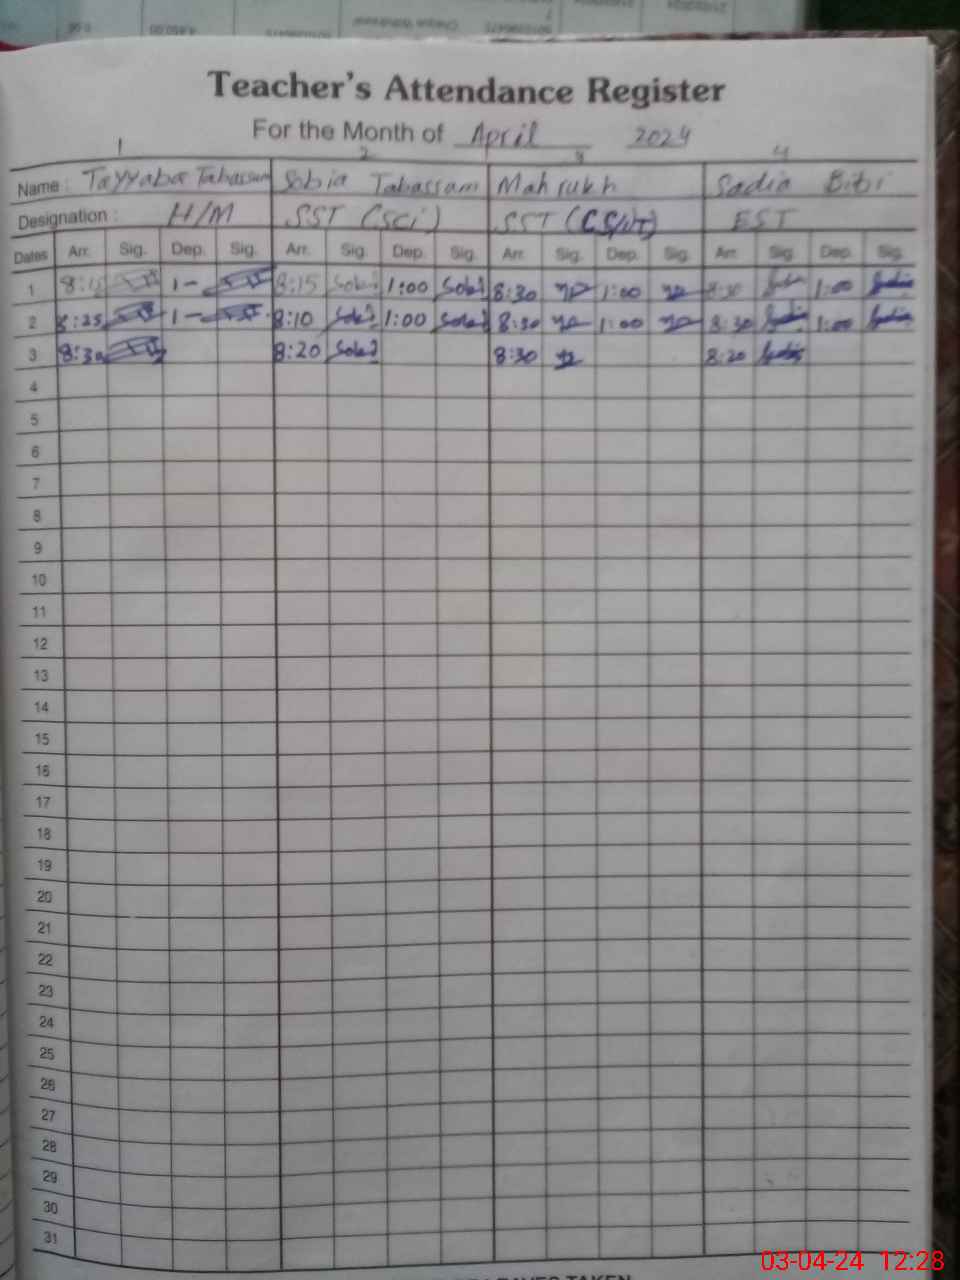 Cheque Withdrawal
Teacher's Attendance Register
For the Month of April 2024
1 2 3 4
Name : Tayyaba Tabassum Sobia Tabassam Mahrukh Sadia Bibi
Designation : H/M SST (Sci) SST (CS/IT) EST
Dates Arr. Sig. Dep. Sig. Arr. Sig. Dep. Sig. Arr. Sig. Dep. Sig. Arr. Sig. Dep. Sig.
1 8:15 1- 8:15 1:00 8:30 1:00 8:30 1:00
2 8:25 1- 8:10 1:00 8:30 1:00 8:30 1:00
3 8:30 8:20 8:30 8:20
4
5
6
7
8
9
10
11
12
13
14
15
16
17
18
19
20
21
22
23
24
25
26
27
28
29
30
31
03-04-24 12:28